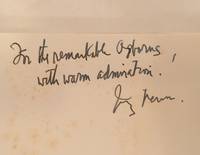 For the remarkable Osborns,
with warm admiration.